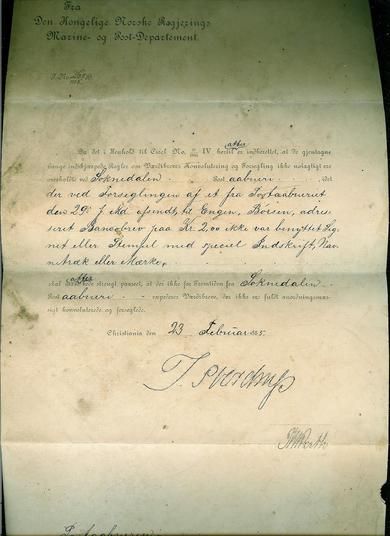 Fra
Den Kongelige Norske Regjerings
Marine- og Post-Departement.
J. No.
Da det i Henhold til Circl. No. IV hertil er atter indberettet, at de gjentagne
Gange indskjærpede Regler om Værdibreves Konvolutering og Forsegling ikke nøiagtigt ere
overholdte ved Soknedalen Postaabneri, idet
der ved Forseglingen af et fra Postaabneriet
den 29. f. Md. afsendt, til Engen, Børsen, adres-
seret Bancobrev paa Kr. 2,00 ikke var benyttet Sig-
net eller Stempel med speciel Indskrift, Nav-
netræk eller Mærke,
skal atter strengt paasees, at der ikke for Fremtiden fra Soknedalen
Postaabneri expederes Værdibreve, der ikke er fuldt anordningsmæs-
sigt konvoluterede og forseglede.
Christiania den 23 Februar 1885.
J. Sverdrup
Postaabneren i